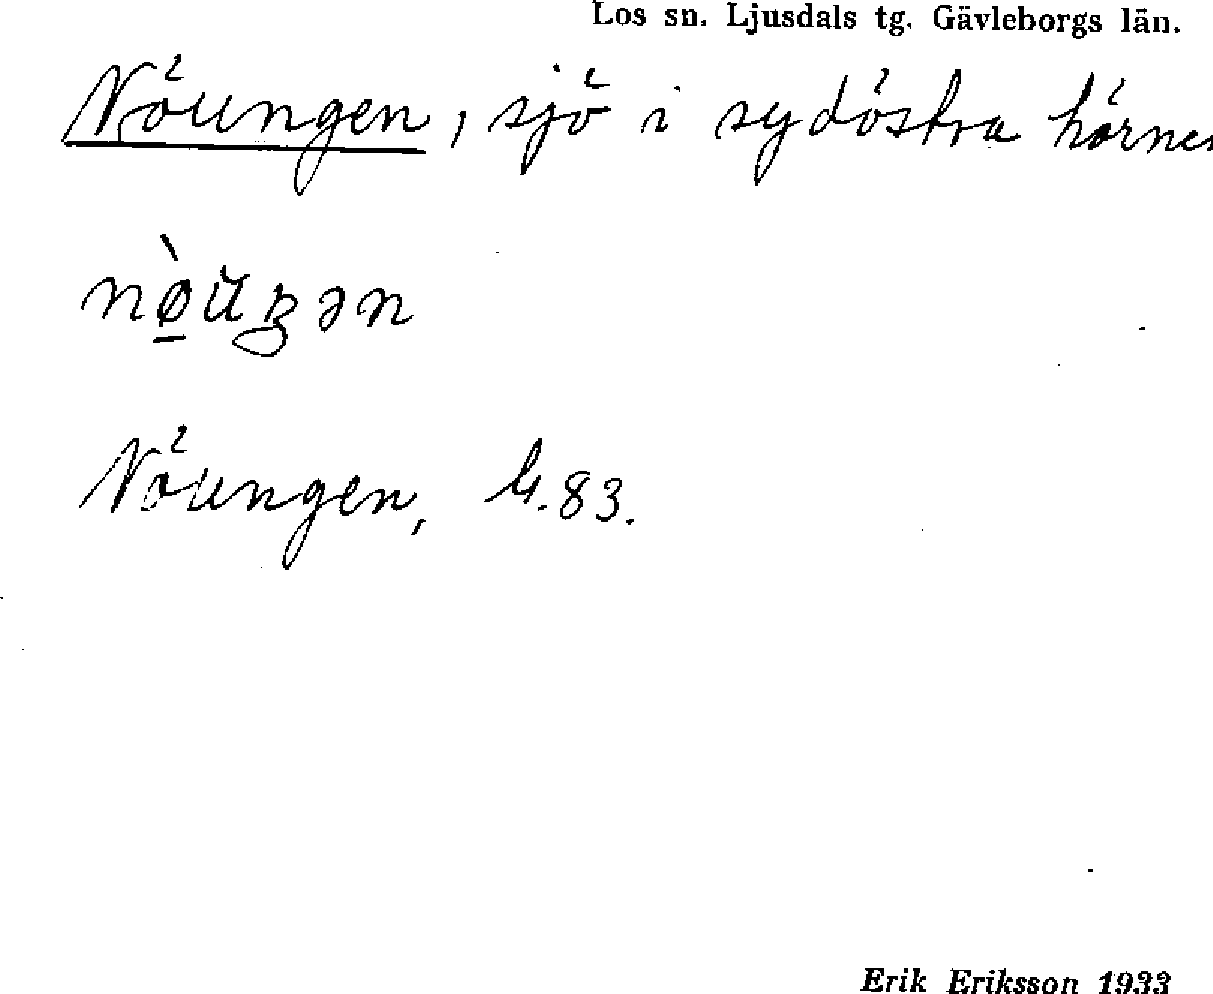 Los sn. Ljusdals tg. Gävleborgs län.
Nöungen, sjö i sydöstra
Nöungen, G.83.
Erik Eriksson 1933